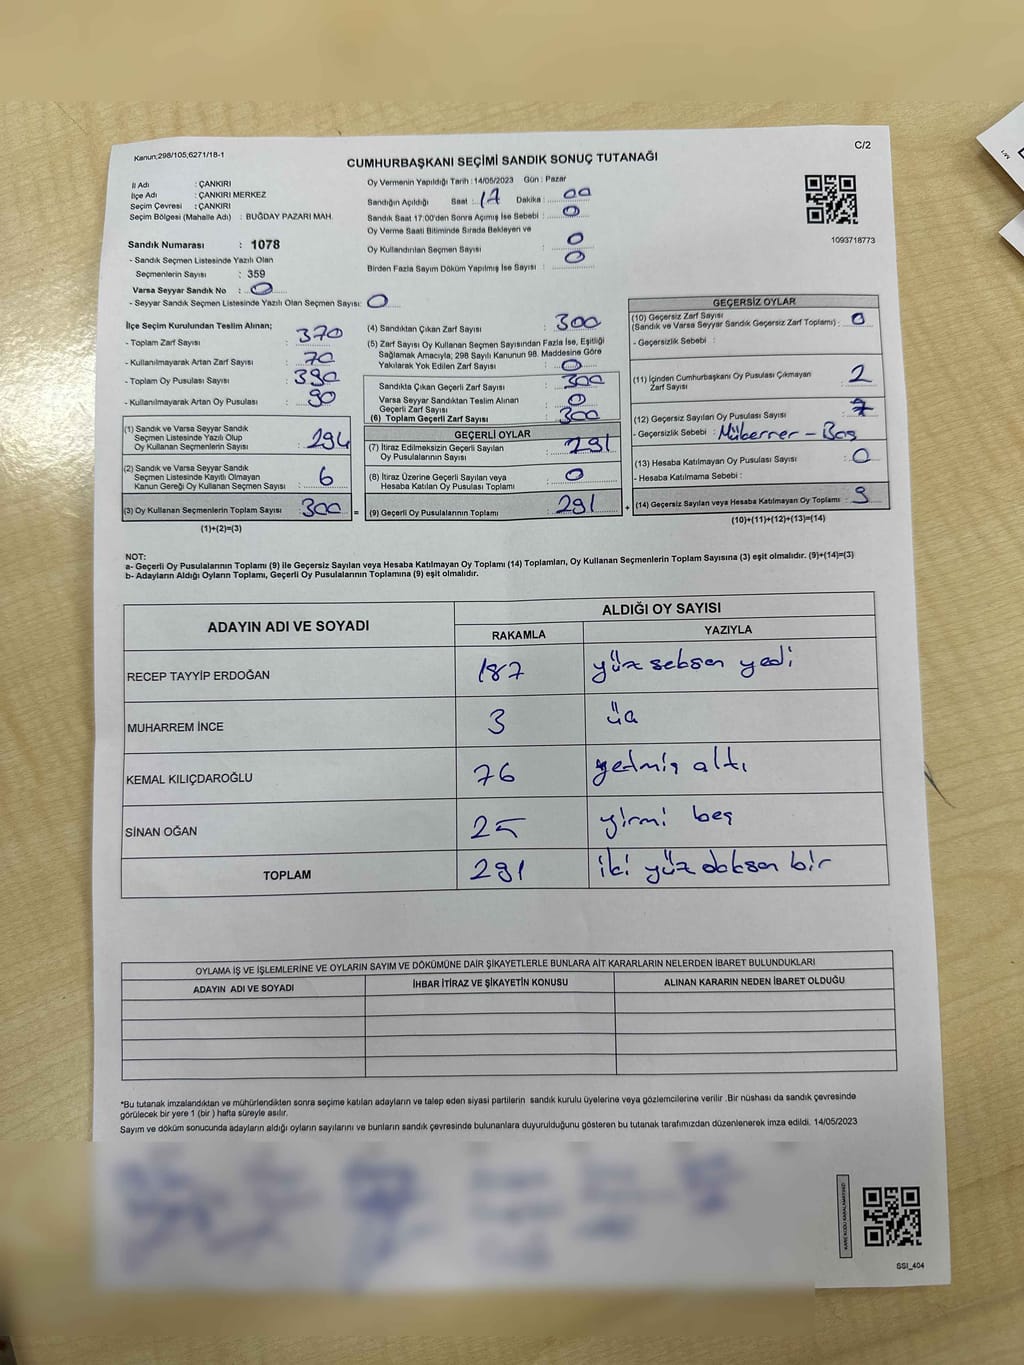 Kanun;298/105,6271/18-1
C/2
CUMHURBAŞKANI SEÇİMİ SANDIK SONUÇ TUTANAĞI
İl Adı : ÇANKIRI
İlçe Adı : ÇANKIRI MERKEZ
Seçim Çevresi : ÇANKIRI
Seçim Bölgesi (Mahalle Adı) : BUĞDAY PAZARI MAH.
Sandık Numarası : 1078
- Sandık Seçmen Listesinde Yazılı Olan
Seçmenlerin Sayısı : 359
Varsa Seyyar Sandık No : 0
- Seyyar Sandık Seçmen Listesinde Yazılı Olan Seçmen Sayısı: 0
Oy Vermenin Yapıldığı Tarih :14/05/2023 Gün : Pazar
Sandığın Açıldığı Saat : 17 Dakika : 00
Sandık Saat 17:00'den Sonra Açımış İse Sebebi : 0
Oy Verme Saati Bitiminde Sırada Bekleyen ve
Oy Kullandırılan Seçmen Sayısı : 0
Birden Fazla Sayım Döküm Yapılmış İse Sayısı : 0
1093718773
İlçe Seçim Kurulundan Teslim Alınan;
- Toplam Zarf Sayısı : 370
- Kullanılmayarak Artan Zarf Sayısı : 70
- Toplam Oy Pusulası Sayısı : 390
- Kullanılmayarak Artan Oy Pusulası : 90
(1) Sandık ve Varsa Seyyar Sandık
Seçmen Listesinde Yazılı Olup
Oy Kullanan Seçmenlerin Sayısı : 294
(2) Sandık ve Varsa Seyyar Sandık
Seçmen Listesinde Kayıtlı Olmayan
Kanun Gereği Oy Kullanan Seçmen Sayısı : 6
(3) Oy Kullanan Seçmenlerin Toplam Sayısı : 300 =
(1)+(2)=(3)
(4) Sandıktan Çıkan Zarf Sayısı : 300
(5) Zarf Sayısı Oy Kullanan Seçmen Sayısından Fazla İse, Eşitliği
Sağlamak Amacıyla; 298 Sayılı Kanunun 98. Maddesine Göre
Yakılarak Yok Edilen Zarf Sayısı : 0
Sandıkta Çıkan Geçerli Zarf Sayısı : 300
Varsa Seyyar Sandıktan Teslim Alınan
Geçerli Zarf Sayısı : 0
(6) Toplam Geçerli Zarf Sayısı : 300
GEÇERLİ OYLAR
(7) İtiraz Edilmeksizin Geçerli Sayılan
Oy Pusulalarının Sayısı : 291
(8) İtiraz Üzerine Geçerli Sayılan veya
Hesaba Katılan Oy Pusulası Toplamı : 0
(9) Geçerli Oy Pusulalarının Toplamı : 291 +
GEÇERSİZ OYLAR
(10) Geçersiz Zarf Sayısı
(Sandık ve Varsa Seyyar Sandık Geçersiz Zarf Toplamı) : 0
- Geçersizlik Sebebi :
(11) İçinden Cumhurbaşkanı Oy Pusulası Çıkmayan
Zarf Sayısı : 2
(12) Geçersiz Sayılan Oy Pusulası Sayısı : 7
- Geçersizlik Sebebi : Müberrer - Boş
(13) Hesaba Katılmayan Oy Pusulası Sayısı : 0
- Hesaba Katılmama Sebebi :
(14) Geçersiz Sayılan veya Hesaba Katılmayan Oy Toplamı : 9
(10)+(11)+(12)+(13)=(14)
NOT:
a- Geçerli Oy Pusulalarının Toplamı (9) ile Geçersiz Sayılan veya Hesaba Katılmayan Oy Toplamı (14) Toplamları, Oy Kullanan Seçmenlerin Toplam Sayısına (3) eşit olmalıdır. (9)+(14)=(3)
b- Adayların Aldığı Oyların Toplamı, Geçerli Oy Pusulalarının Toplamına (9) eşit olmalıdır.
ADAYIN ADI VE SOYADI
ALDIĞI OY SAYISI
RAKAMLA YAZIYLA
RECEP TAYYİP ERDOĞAN 187 yüz seksen yedi
MUHARREM İNCE 3 üç
KEMAL KILIÇDAROĞLU 76 yetmiş altı
SİNAN OĞAN 25 yirmi beş
TOPLAM 291 iki yüz doksan bir
OYLAMA İŞ VE İŞLEMLERİNE VE OYLARIN SAYIM VE DÖKÜMÜNE DAİR ŞİKAYETLERLE BUNLARA AİT KARARLARIN NELERDEN İBARET BULUNDUKLARI
ADAYIN ADI VE SOYADI İHBAR İTİRAZ VE ŞİKAYETİN KONUSU ALINAN KARARIN NEDEN İBARET OLDUĞU
*Bu tutanak imzalandıktan ve mühürlendikten sonra seçime katılan adayların ve talep eden siyasi partilerin sandık kurulu üyelerine veya gözlemcilerine verilir .Bir nüshası da sandık çevresinde
görülecek bir yere 1 (bir ) hafta süreyle asılır.
Sayım ve döküm sonucunda adayların aldığı oyların sayılarını ve bunların sandık çevresinde bulunanlara duyurulduğunu gösteren bu tutanak tarafımızdan düzenlenerek imza edildi. 14/05/2023
KARE KODU KARALAMAYINIZ!
SSI_404